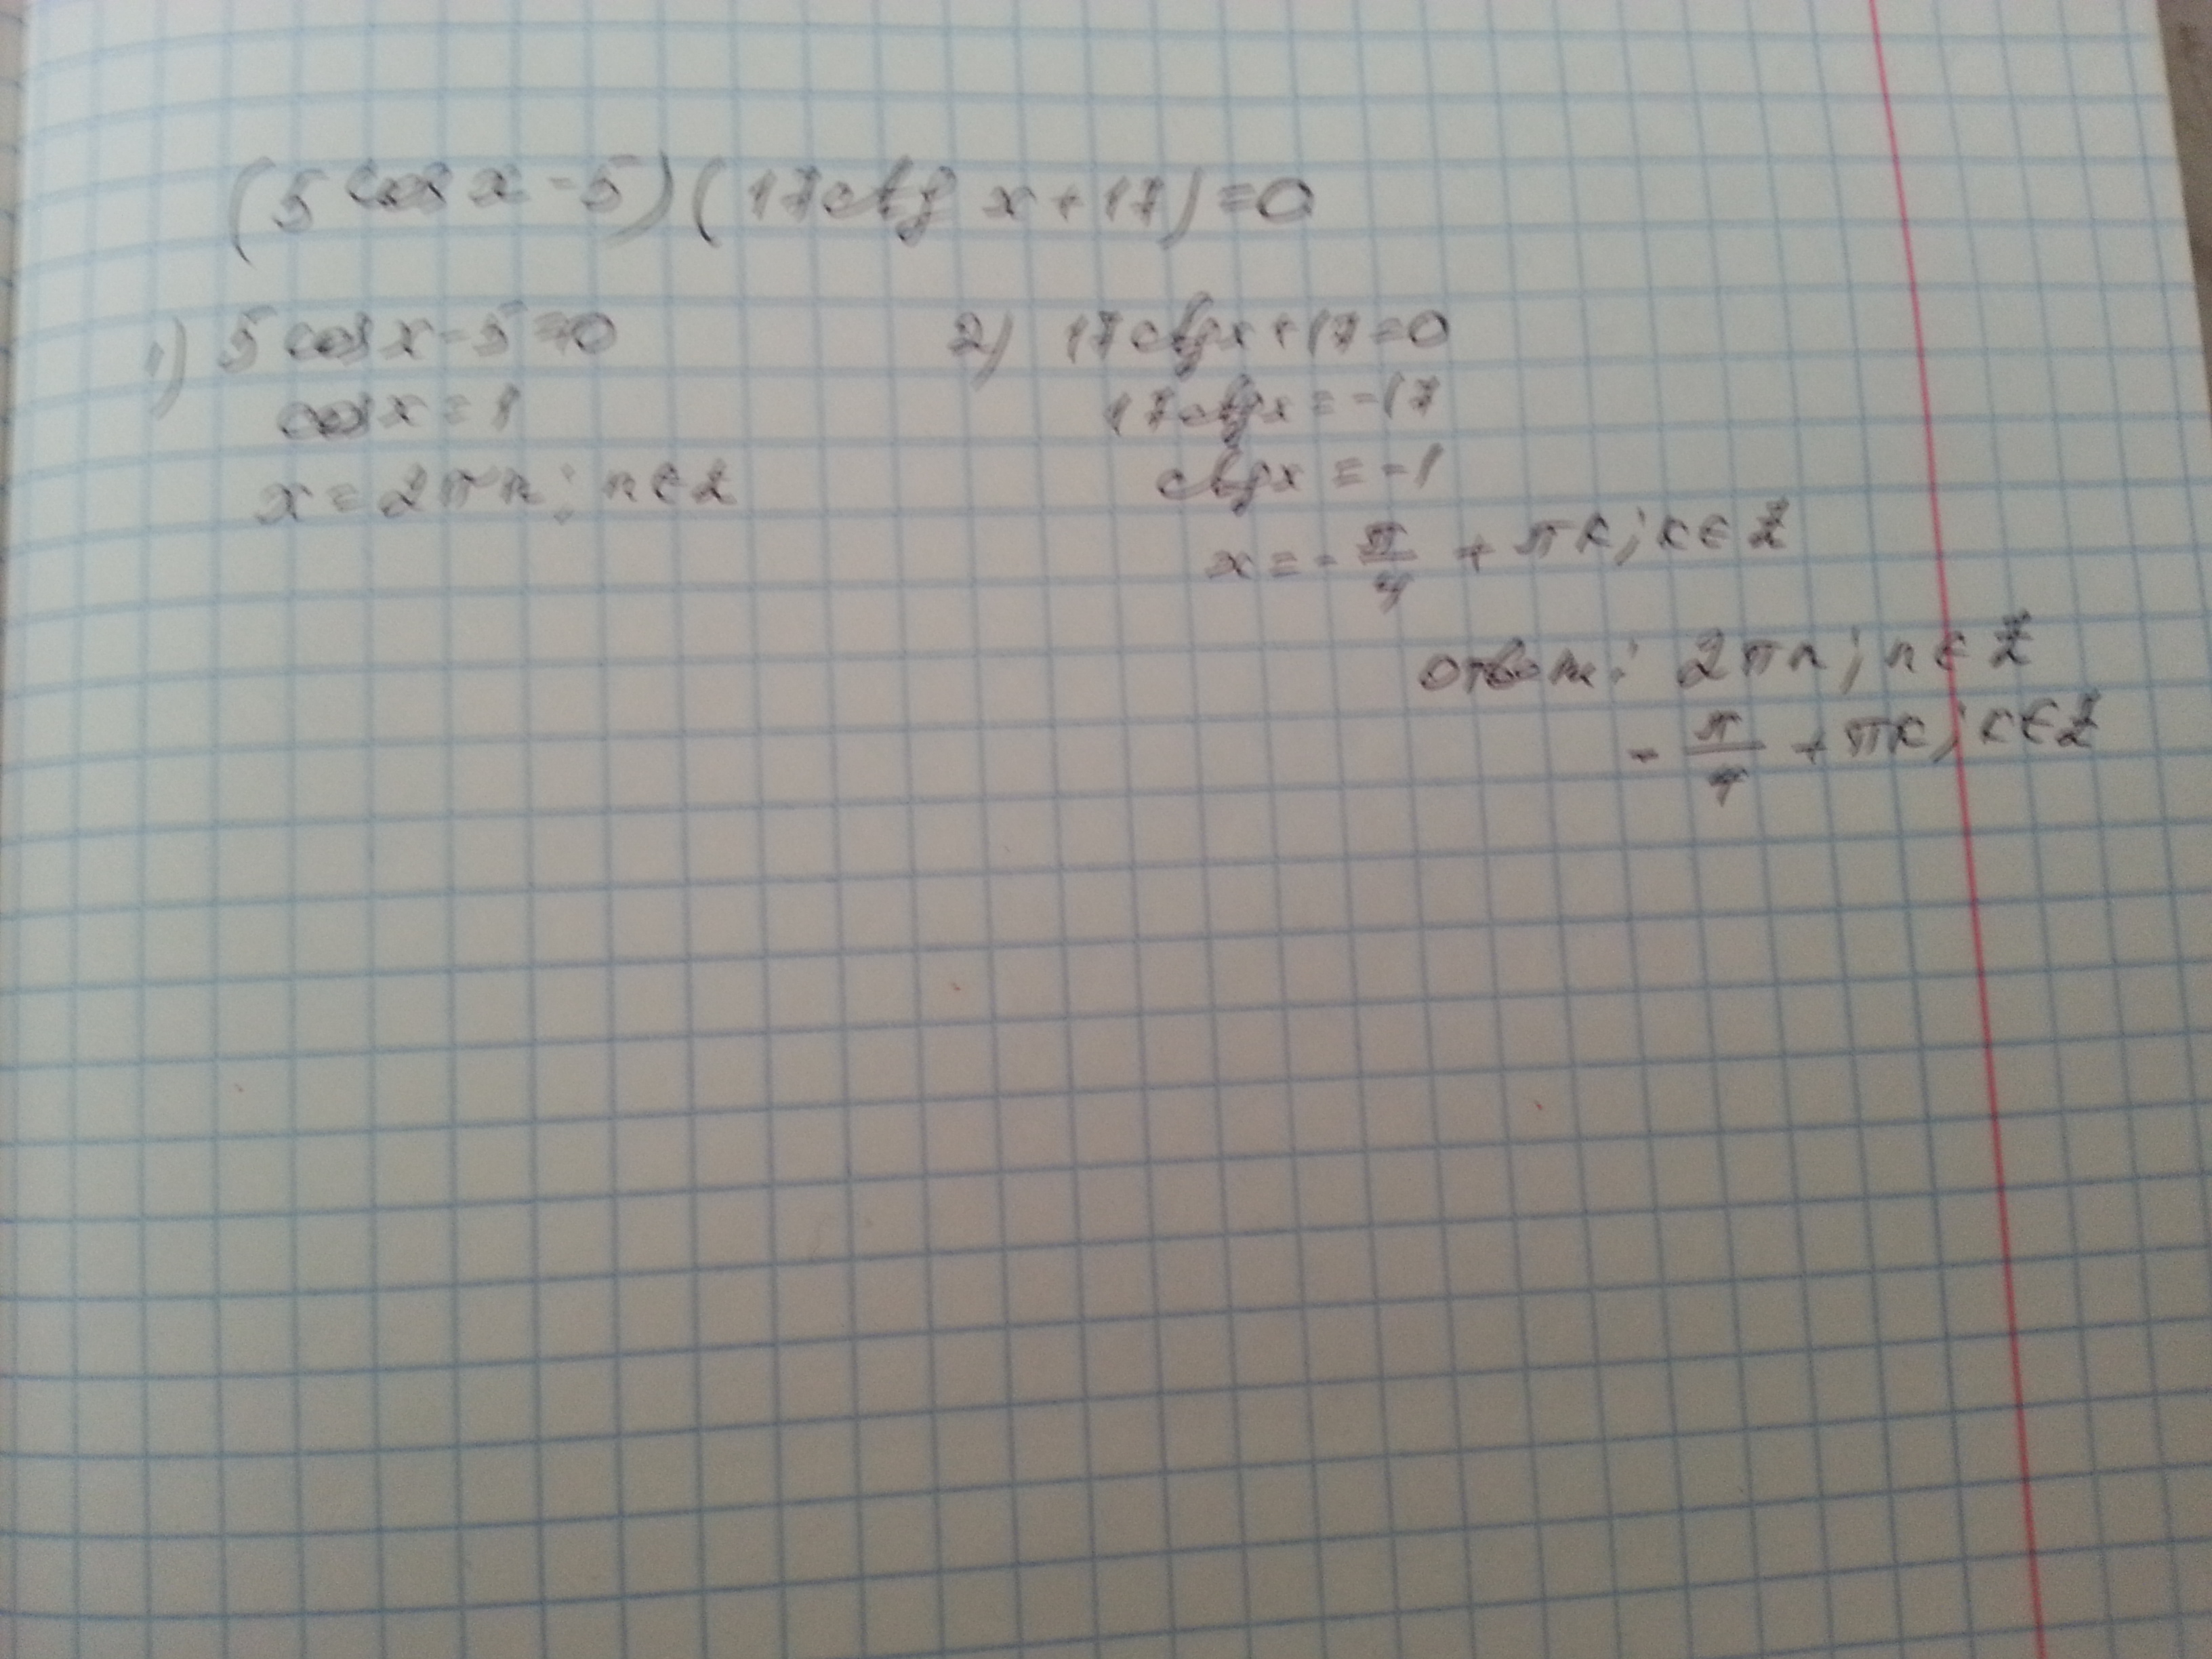 (5 cos x - 5)(17 ctg x + 17) = 0
1) 5 cos x - 5 = 0
cos x = 1
x = 2πn; n ∈ Z
2) 17 ctg x + 17 = 0
17 ctg x = -17
ctg x = -1
x = - π/4 + πk; k ∈ Z
ответ: 2πn; n ∈ Z
- π/4 + πk; k ∈ Z